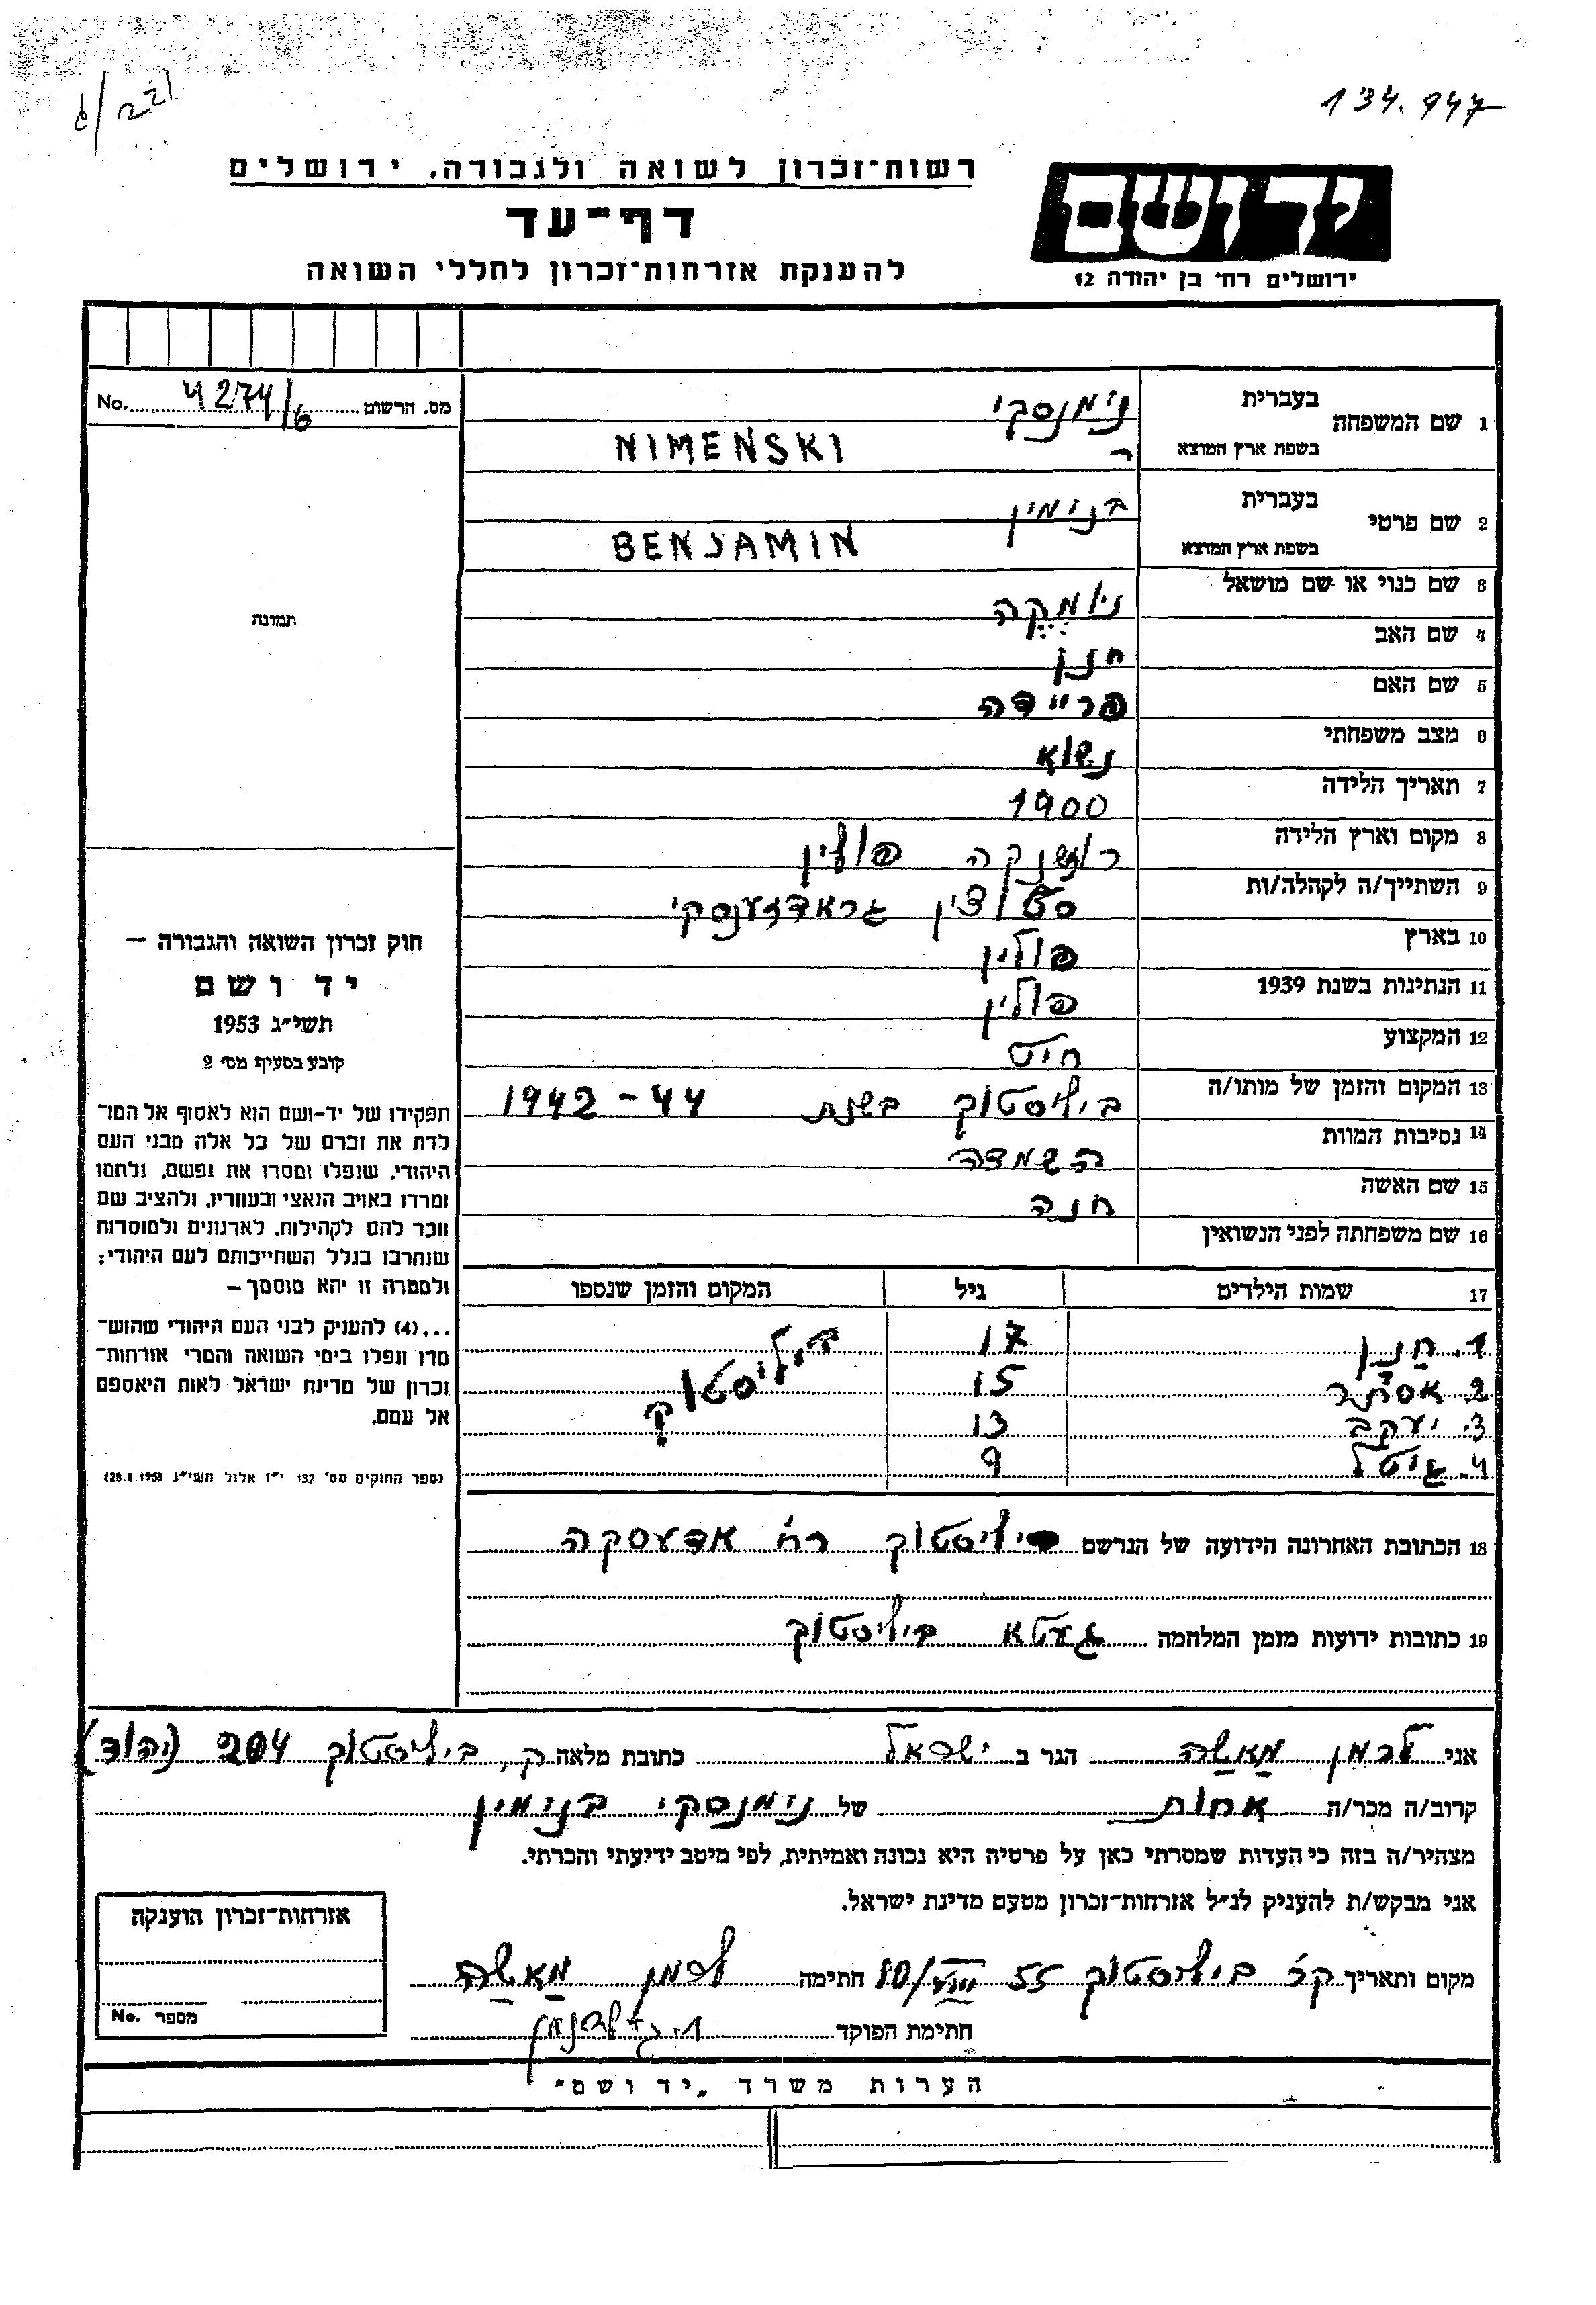 6/221
134.947
יד ושם
רשות־זכרון לשואה ולגבורה, ירושלים
דף־עד
להענקת אזרחות־זכרון לחללי השואה
ירושלים רח׳ בן יהודה 12
מס. הרשום 4274/6 No.
1 שם המשפחה בעברית נימנסקי
בשפת ארץ המוצא NIMENSKI
2 שם פרטי בעברית בנימין
בשפת ארץ המוצא BENJAMIN
3 שם כנוי או שם מושאל ניומקה
4 שם האב חנן
5 שם האם פריידה
6 מצב משפחתי נשוא
7 תאריך הלידה 1900
8 מקום וארץ הלידה פולין
9 השתייך/ה לקהלה/ות גראדזענסקי
10 בארץ פולין
11 הנתינות בשנת 1939 פולין
12 המקצוע חיט
13 המקום והזמן של מותו/ה ביליסטוק בשנת 1942-44
14 נסיבות המוות השמדה
15 שם האשה חנה
16 שם משפחתה לפני הנשואין
17 שמות הילדים גיל המקום והזמן שנספו
1. חנן 17 ביליסטוק
2. אסתר 15
3. יעקב 13
4. גיטל 9
18 הכתובת האחרונה הידועה של הנרשם ביליסטוק רח׳ אדעסקה
19 כתובות ידועות מזמן המלחמה געטא ביליסטוק
תמונה
חוק זכרון השואה והגבורה —
יד ושם
תשי״ג 1953
קובע בסעיף מס׳ 2
תפקידו של יד-ושם הוא לאסוף אל המו־
לדת את זכרם של כל אלה מבני העם
היהודי, שנפלו ומסרו את נפשם, נלחמו
ומרדו באויב הנאצי ובעוזריו, ולהציב שם
וזכר להם לקהילות, לארגונים ולמוסדות
שנחרבו בגלל השתייכותם לעם היהודי;
ולמטרה זו יהא מוסמך —
...(4) להעניק לבני העם היהודי שהוש־
מדו ונפלו בימי השואה והמרי אזרחות־
זכרון של מדינת ישראל לאות היאספם
אל עמם.
(ספר החוקים מס׳ 132 י״ז אלול תשי״ג 28.8.1953)
אני לרמן מאשה הגר ב ישראל כתובת מלאה ק. ביליסטוק 204 (יהוד)
קרוב/ה מכר/ה אחות של נימנסקי בנימין
מצהיר/ה בזה כי העדות שמסרתי כאן על פרטיה היא נכונה ואמיתית, לפי מיטב ידיעתי והכרתי.
אני מבקש/ת להעניק לנ״ל אזרחות־זכרון מטעם מדינת ישראל.
מקום ותאריך קר׳ ביליסטוק 10/VIII 55 חתימה לרמן מאשה
חתימת הפוקד
אזרחות־זכרון הוענקה
מספר No.
הערות משרד „יד ושם״